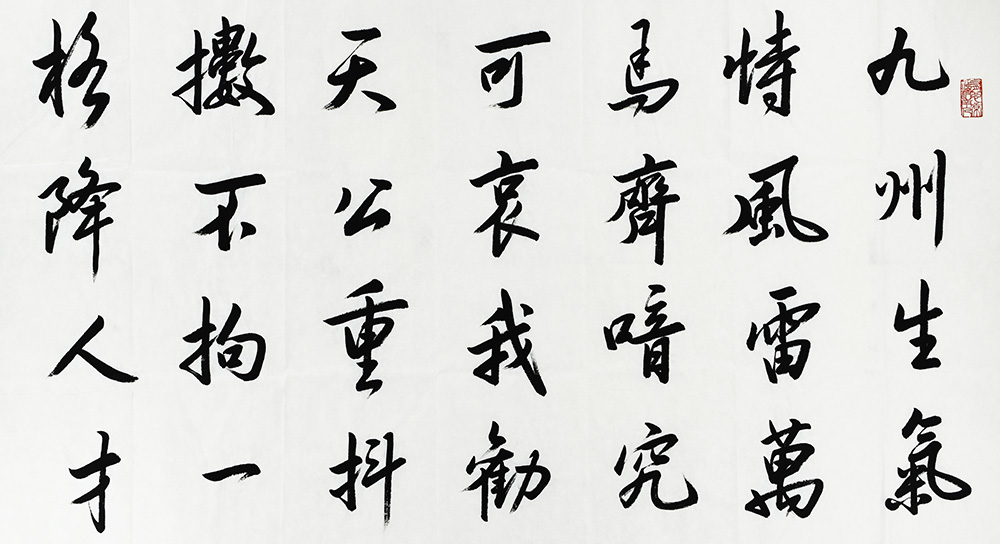 九州生氣
恃風雷萬
馬齊喑究
可哀我勸
天公重抖
擻不拘一
格降人才